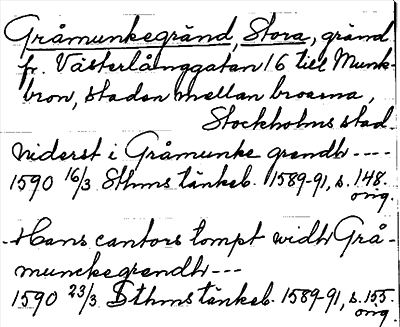 Gråmunkegränd, Stora, gränd
fr. Västerlånggatan 16 till Munk-
bron, staden mellan broarna,
Stockholms stad.
Niderst i Gråmunke grendh ----
1590 16/3 Sthms tänkeb. 1589-91, s. 148.
orig.
- Hans cantors tompt widh Grå-
munckegrendh ---
1590 23/3 Sthms tänkeb. 1589-91, s. 155.
orig.